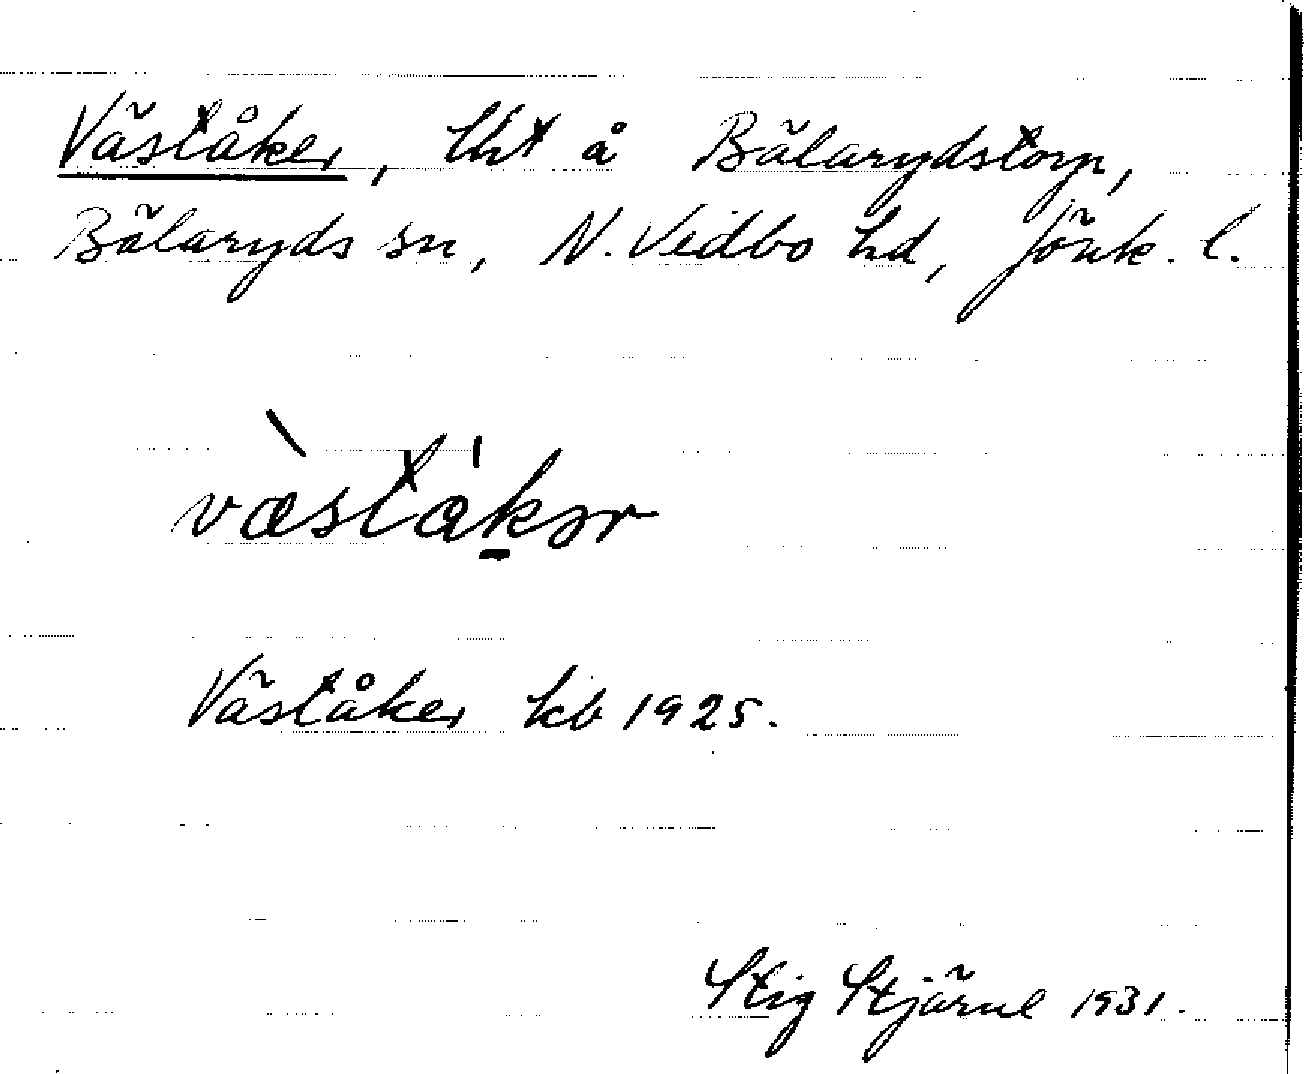 Väståker, lht å Bälarydstorp,
Bälaryds sn, N. Vedbo hd, Jönk. l.
væstàkər
Väståker kb 1925.
Stig Stjärne 1931.